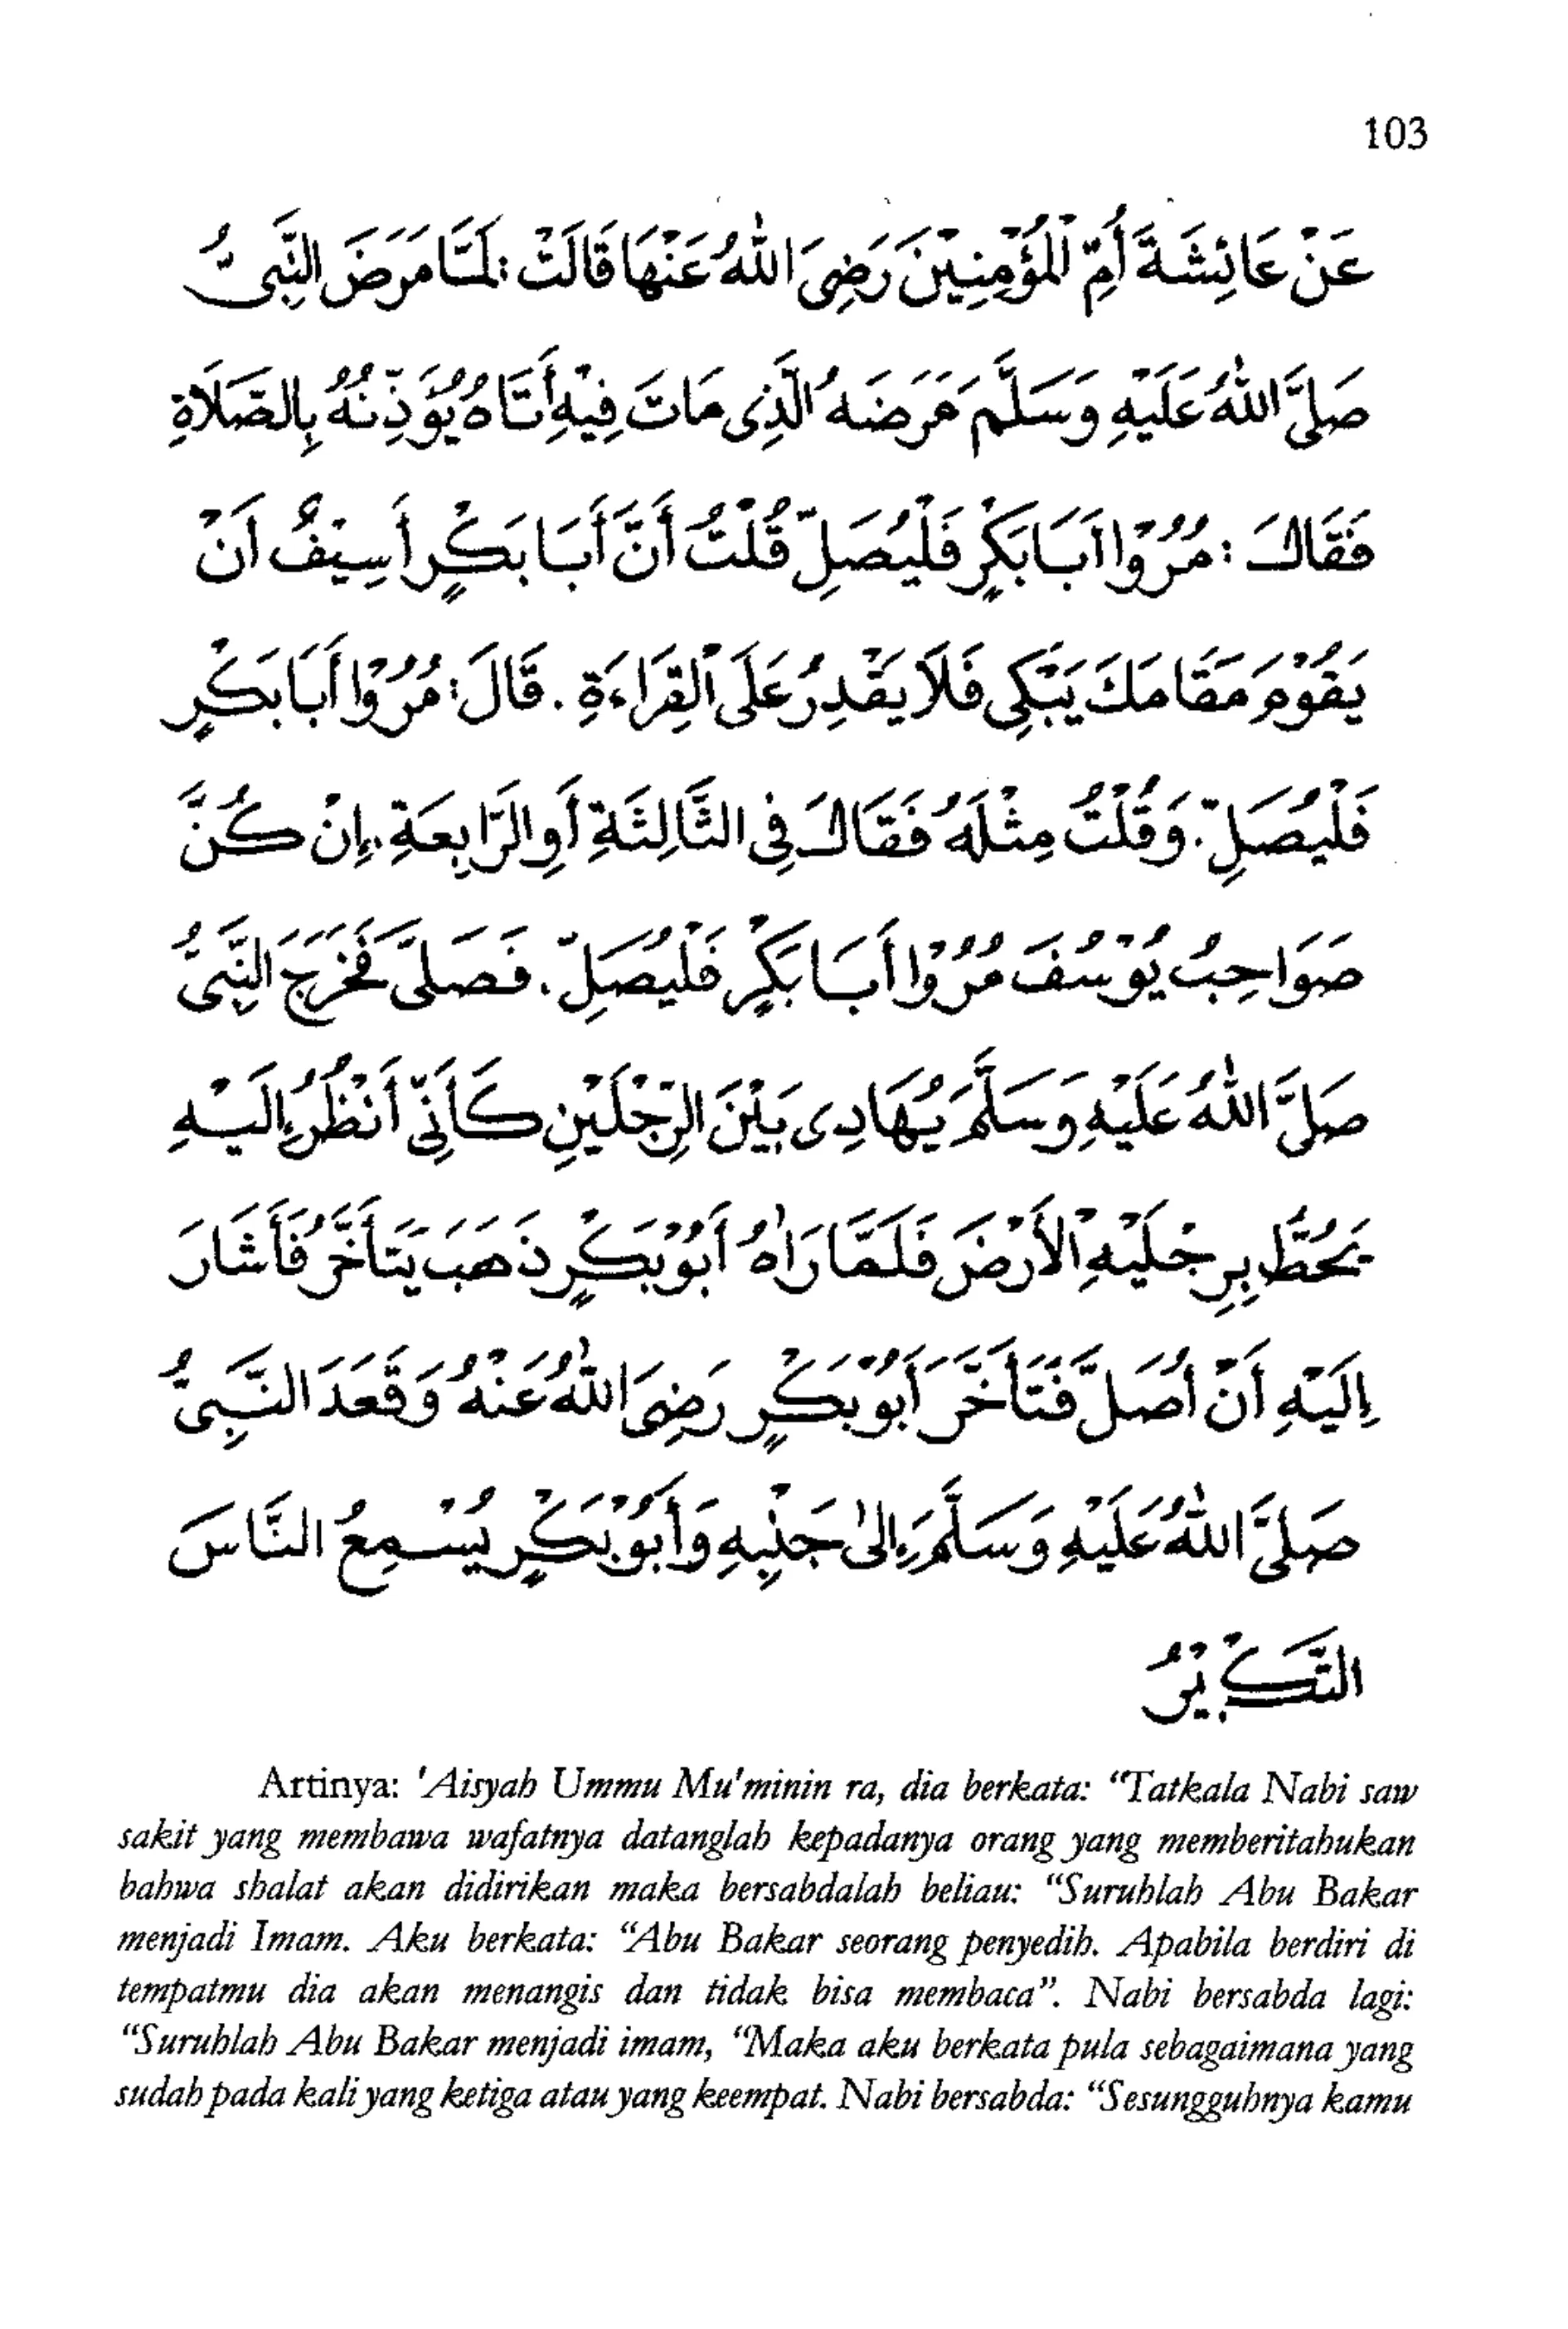 103
عَنْ عَائِشَةَ أُمِّ الْمُؤْمِنِيْنَ رَضِيَ اللهُ عَنْهَا قَالَتْ : لَمَّا مَرَضَ النَّبِيُّ
صَلَّى اللهُ عَلَيْهِ وَسَلَّمَ مَرَضَهُ الَّذِى مَاتَ فِيْهِ أَتَاهُ يُؤَذِّنُهُ بِالصَّلَاةِ
فَقَالَ : مُرُوْا اَبَا بَكْرٍ فَلْيُصَلِّ قُلْتُ أَنَّ أَبَا بَكْرٍ أَسِيْفٌ اَنْ
يَقُوْمَ مَقَامَكَ يَبْكِى فَلَا يَقْدِرُ عَلَى الْقِرَاءَةِ . قَالَ : مُرُوْا أَبَا بَكْرٍ
فَلْيُصَلِّ . وَقُلْتُ مِثْلَهُ فَقَالَ فِى الثَّالِثَةِ أَوِ الرَّابِعَةِ . إِنْ كُنَّ
صَوَاحِبُ يُوْسُفَ مُرُوْا أَبَا بَكْرٍ فَلْيُصَلِّ . فَصَلَّى فَخَرَجَ النَّبِيُّ
صَلَّى اللهُ عَلَيْهِ وَسَلَّمَ يُهَادِى بَيْنَ الرَّجْلَيْنِ كَأَنِّى أَنْظُرُ إِلَيْهِ
يَحُطُّ بِرِجْلَيْهِ الْأَرْضَ فَلَمَّا رَاٰهُ أَبُوْ بَكْرٍ ذَهَبَ يَتَأَخَّرُ فَأَشَارَ
اِلَيْهِ اَنْ اُصَلَّ فَتَأَخَّرَ أَبُوْ بَكْرٍ رَضِيَ اللهُ عَنْهُ وَقَعَدَ النَّبِيُّ
صَلَّى اللهُ عَلَيْهِ وَسَلَّمَ إِلىٰ جَنْبِهِ وَأَبُوْ بَكْرٍ يُسْمِعُ النَّاسَ
التَّكْبِيْرُ
Artinya: 'Aisyah Ummu Mu'minin ra, dia berkata: “Tatkala Nabi saw
sakit yang membawa wafatnya datanglah kepadanya orang yang memberitahukan
bahwa shalat akan didirikan maka bersabdalah beliau: “Suruhlah Abu Bakar
menjadi Imam. Aku berkata: “Abu Bakar seorang penyedih. Apabila berdiri di
tempatmu dia akan menangis dan tidak bisa membaca”. Nabi bersabda lagi:
“Suruhlah Abu Bakar menjadi imam, “Maka aku berkata pula sebagaimana yang
sudah pada kali yang ketiga atau yang keempat. Nabi bersabda: “Sesungguhnya kamu